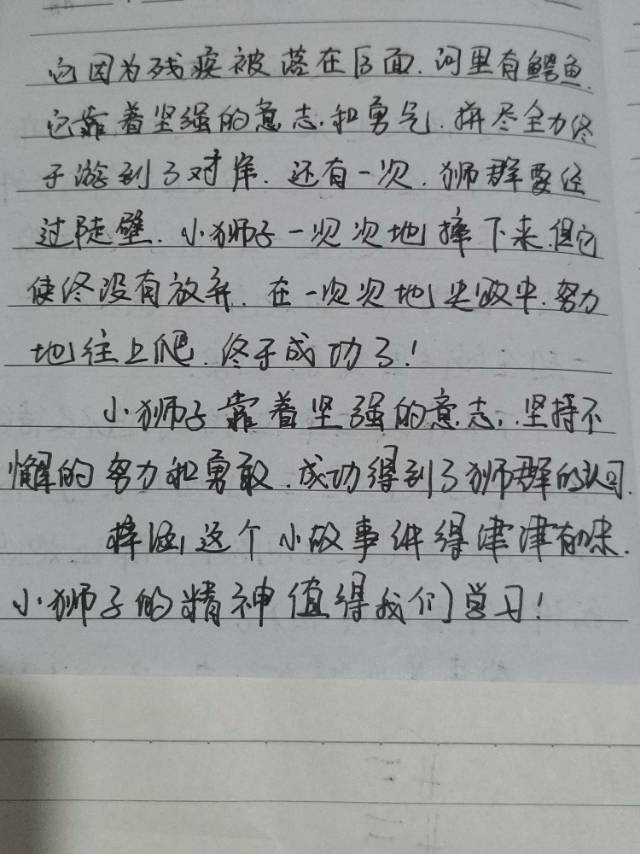 它因为残疾被落在后面.河里有鳄鱼.
它靠着坚强的意志.和勇气.拼尽全力终
于游到了对岸.还有一次.狮群要经
过陡壁.小狮子一次次地摔下来.但它
使终没有放弃.在一次次地失败中.努力
地往上爬.终于成功了!
小狮子靠着坚强的意志,坚持不
懈的努力和勇敢.成功得到了狮群的认可.
梓涵,这个小故事讲得津津有味.
小狮子的精神值得我们学习!